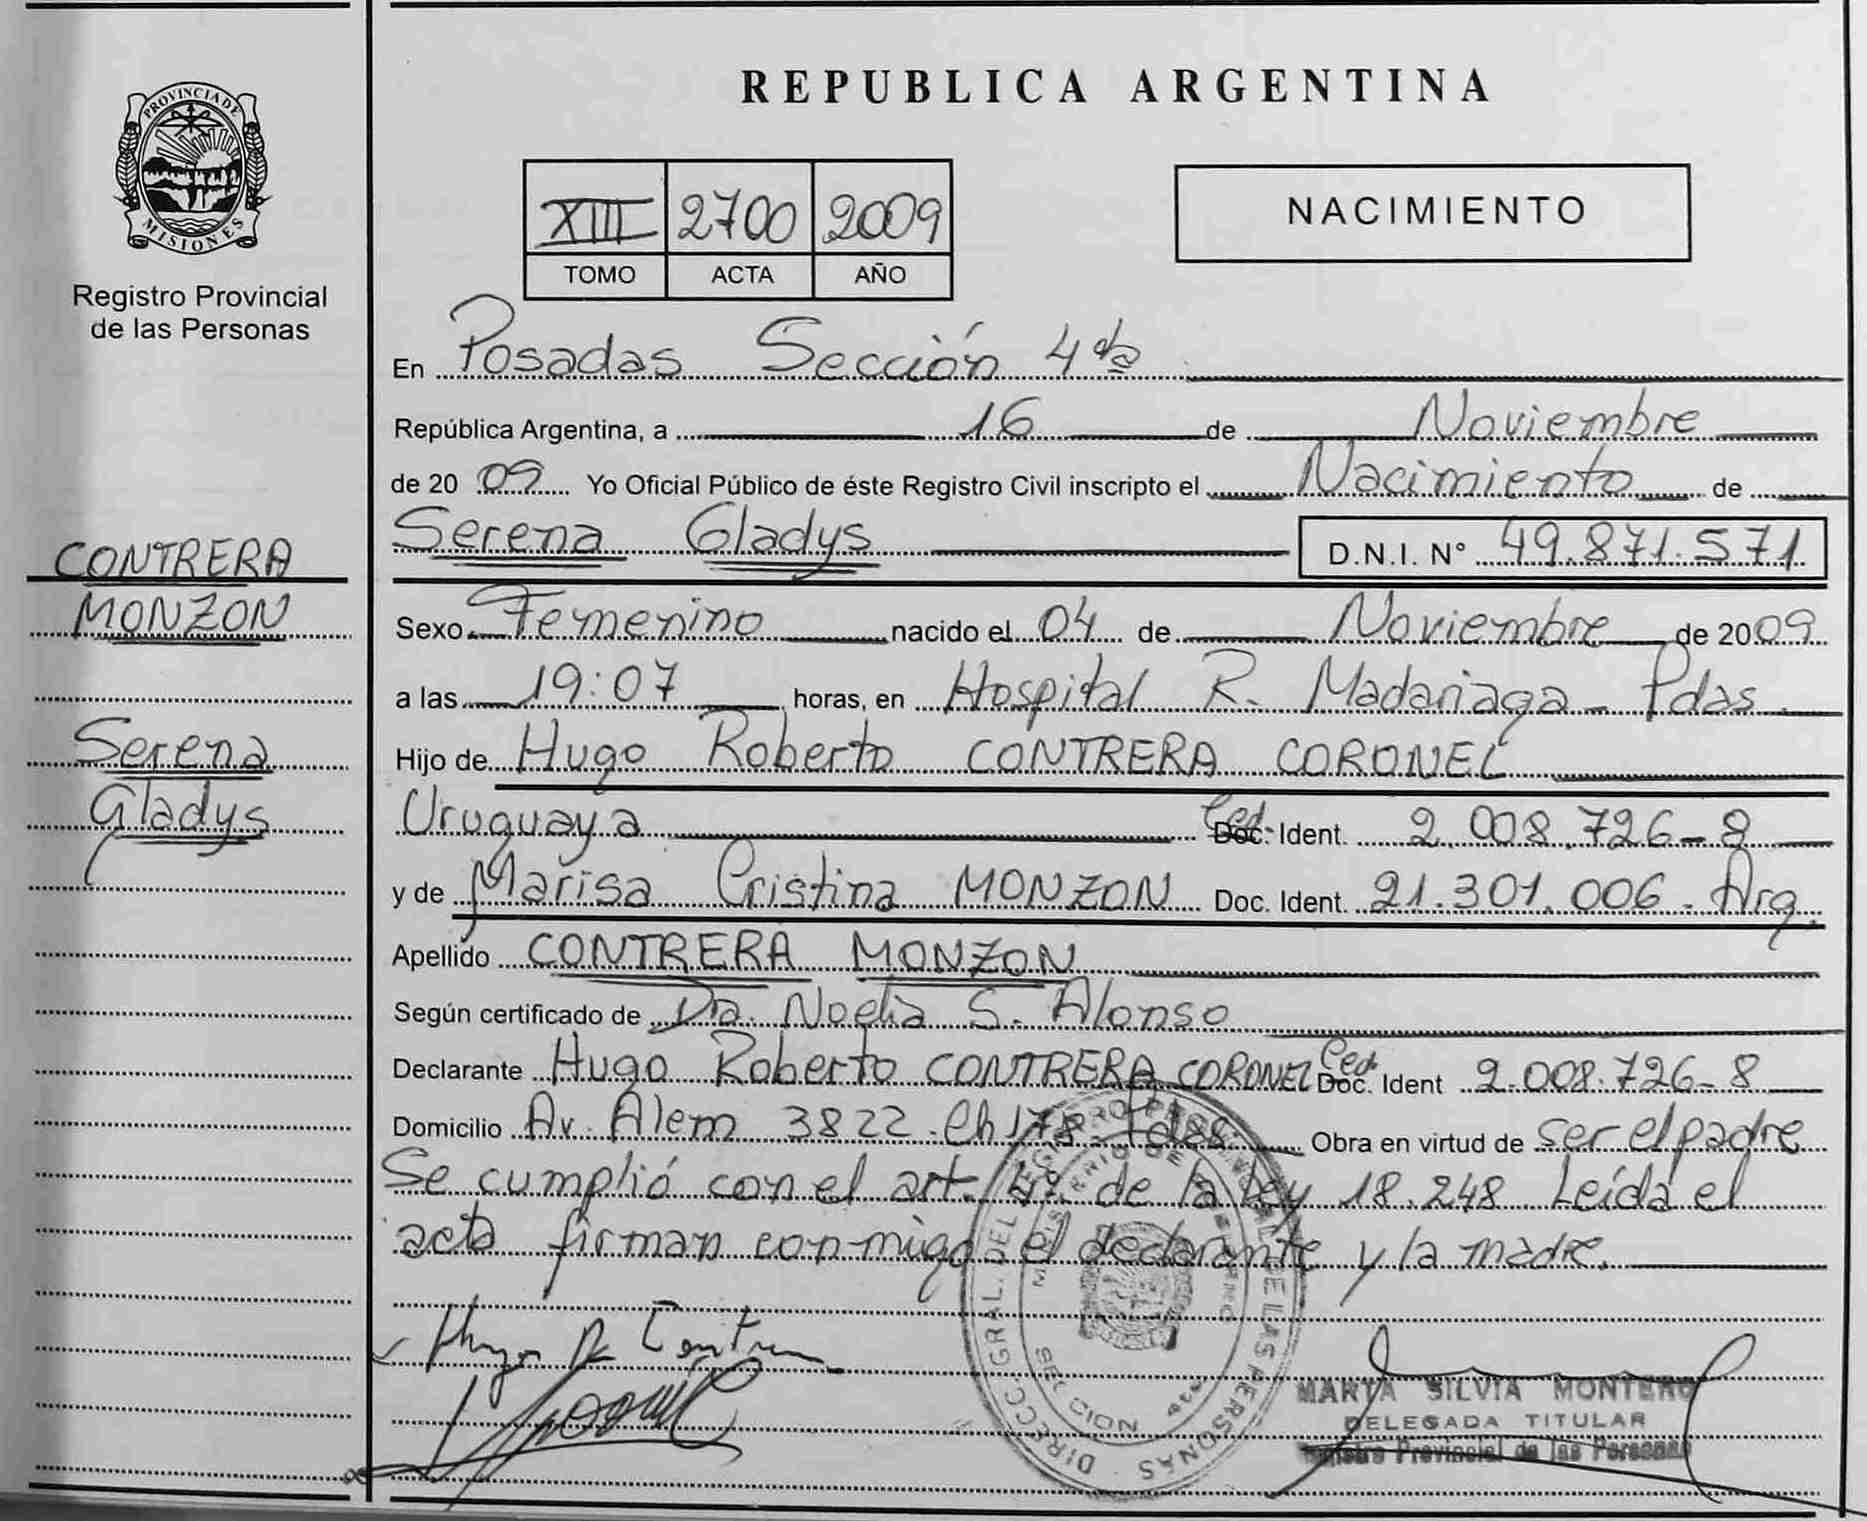 PROVINCIA DE
MISIONES
Registro Provincial
de las Personas
CONTRERA
MONZON
Serena
Gladys
REPUBLICA ARGENTINA
XIII 2700 2009
TOMO ACTA AÑO
NACIMIENTO
En Posadas Sección 4ta
República Argentina, a 16 de Noviembre
de 2009 Yo Oficial Público de éste Registro Civil inscripto el Nacimiento de
Serena Gladys D.N.I. N° 49.871.571
Sexo Femenino nacido el 04 de Noviembre de 2009
a las 19:07 horas, en Hospital R. Madariaga - Pdas.
Hijo de Hugo Roberto CONTRERA CORONEL
Uruguaya Ced. Doc. Ident. 2.008.726-8
y de Marisa Cristina MONZON Doc. Ident. 21.301.006 - Arg.
Apellido CONTRERA MONZON
Según certificado de Dra. Noelia S. Alonso
Declarante Hugo Roberto CONTRERA CORONEL Ced. Doc. Ident 2.008.726-8
Domicilio Av. Alem 3822 - Ch 178 - Pdas. Obra en virtud de ser el padre
Se cumplió con el art. 4º de la Ley 18.248 Leída el
acta firman conmigo el declarante y la madre.
Hugo R Contrera
MARTA SILVIA MONTERO
DELEGADA TITULAR
Registro Provincial de las Personas
DIRECC. GRAL. DEL REGISTRO PROVINCIAL DE LAS PERSONAS